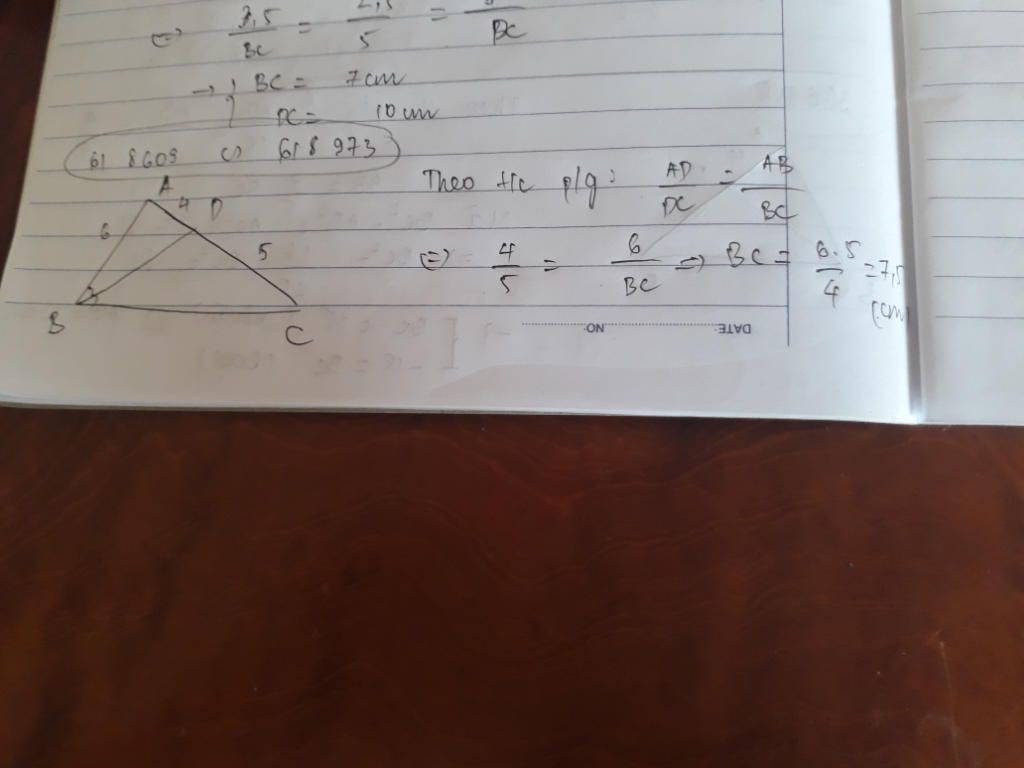 ⇔ 3,5/BC = 2,5/5 = /DC
→ { BC = 7cm
DC = 10cm
618609 c) 618973
A 4 D
6 5
B C
Theo t/c p/g: AD/DC = AB/BC
⇔ 4/5 = 6/BC ⇒ BC = 6.5/4 = 7,5 (cm)
DATE NO.